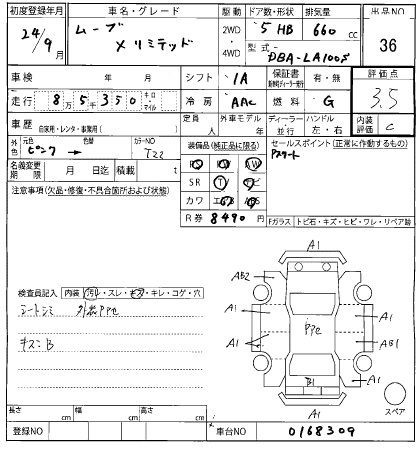 初度登録年月 車名・グレード 駆動 ドア数・形状 排気量 出品NO
24/9月 ムーブ メリミテッド 2WD 4WD 5 HB 660 cc 36
型式 DBA-LA100S
車検 年 月 シフト IA 保証書 有・無 評価点
走行 8万5千350 キロ・マイル 冷房 AAC 燃料 G 3.5
車歴 自家用・レンタ・事業用( ) 定員 人 外車モデル 年 ディーラー・並行 ハンドル 左・右 内装評価 C
外色 元色 ピンク → 色替 カラーNO T22 装備品(純正品に限る) セールスポイント(正常に作動するもの)
名義変更期限 月 日迄 積載 t PS PW Pスタート
注意事項(欠品・修復・不具合箇所および状態) SR TV ナビ
カワ エアB AB
R券 8490円
Fガラス トビ石・キズ・ヒビ・ワレ・リペア跡
検査員記入 内装 汚レ・スレ・キズ・キレ・コゲ・穴
シートシミ 外装PPe
キズニB
A1
AB2
A1 A1
PPe
A1 AB1
B1 A1
A1
スペア
長さ cm 幅 cm 高さ cm
登録NO 車台NO 0168309